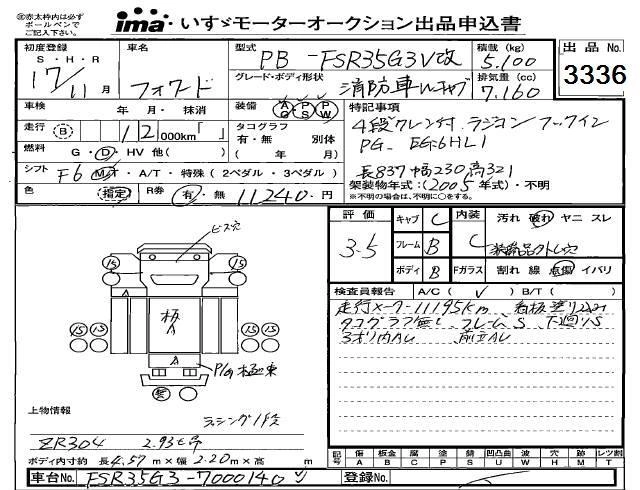 ※赤太枠内は必ず
ボールペンで
ご記入下さい。
ima いすゞモーターオークション出品申込書
初度登録
S・H・R
17/11月
車名
フォワード
型式
PB-FSR35G3V改
積載(kg)
5.100
グレード・ボディ形状
消防車Wキャブ
排気量(cc)
7.160
出品No.
3336
車検 年・月・抹消
装備 AG PS PW
特記事項
走行 B 12 000km「 」
タコグラフ
有・無 別体
4段クレン付 ラジコン フックイン
燃料 G・D・HV 他( )
PG- EG:6HL1
シフト F6 M・A/T・特殊(2ペダル・3ペダル)
長837 幅230 高321
架装物年式:(2005年式)・不明
※不明の場合は、不明に○をする。
色 指定 R券 有・無 11240-円
評価
3.5
キャブ C
フレーム B
ボディ B
内装 C
汚れ 破れ ヤニ スレ
装備品のトレ穴
Fガラス 割れ 線 点傷 イバリ
検査員報告 A/C( ✓ ) B/T( )
走行メーター11195Km、看板塗り込み
タコグラフ無し、フレームS、下廻りS
3方リ内AL 前立AL
ビス穴
15 15
板
A
15 15 15 15
P/G 極東
上物情報
ラッシング1段
ZR304 2.93t吊
ボディ内寸約 長4.57m×幅2.20m×高 m
記号 傷 板金 腐 塗 錆 凹凸曲 波 穴 跡 レンズ割
A B C P S U W H M T
車台No. FSR35G3-7000140
登録No.